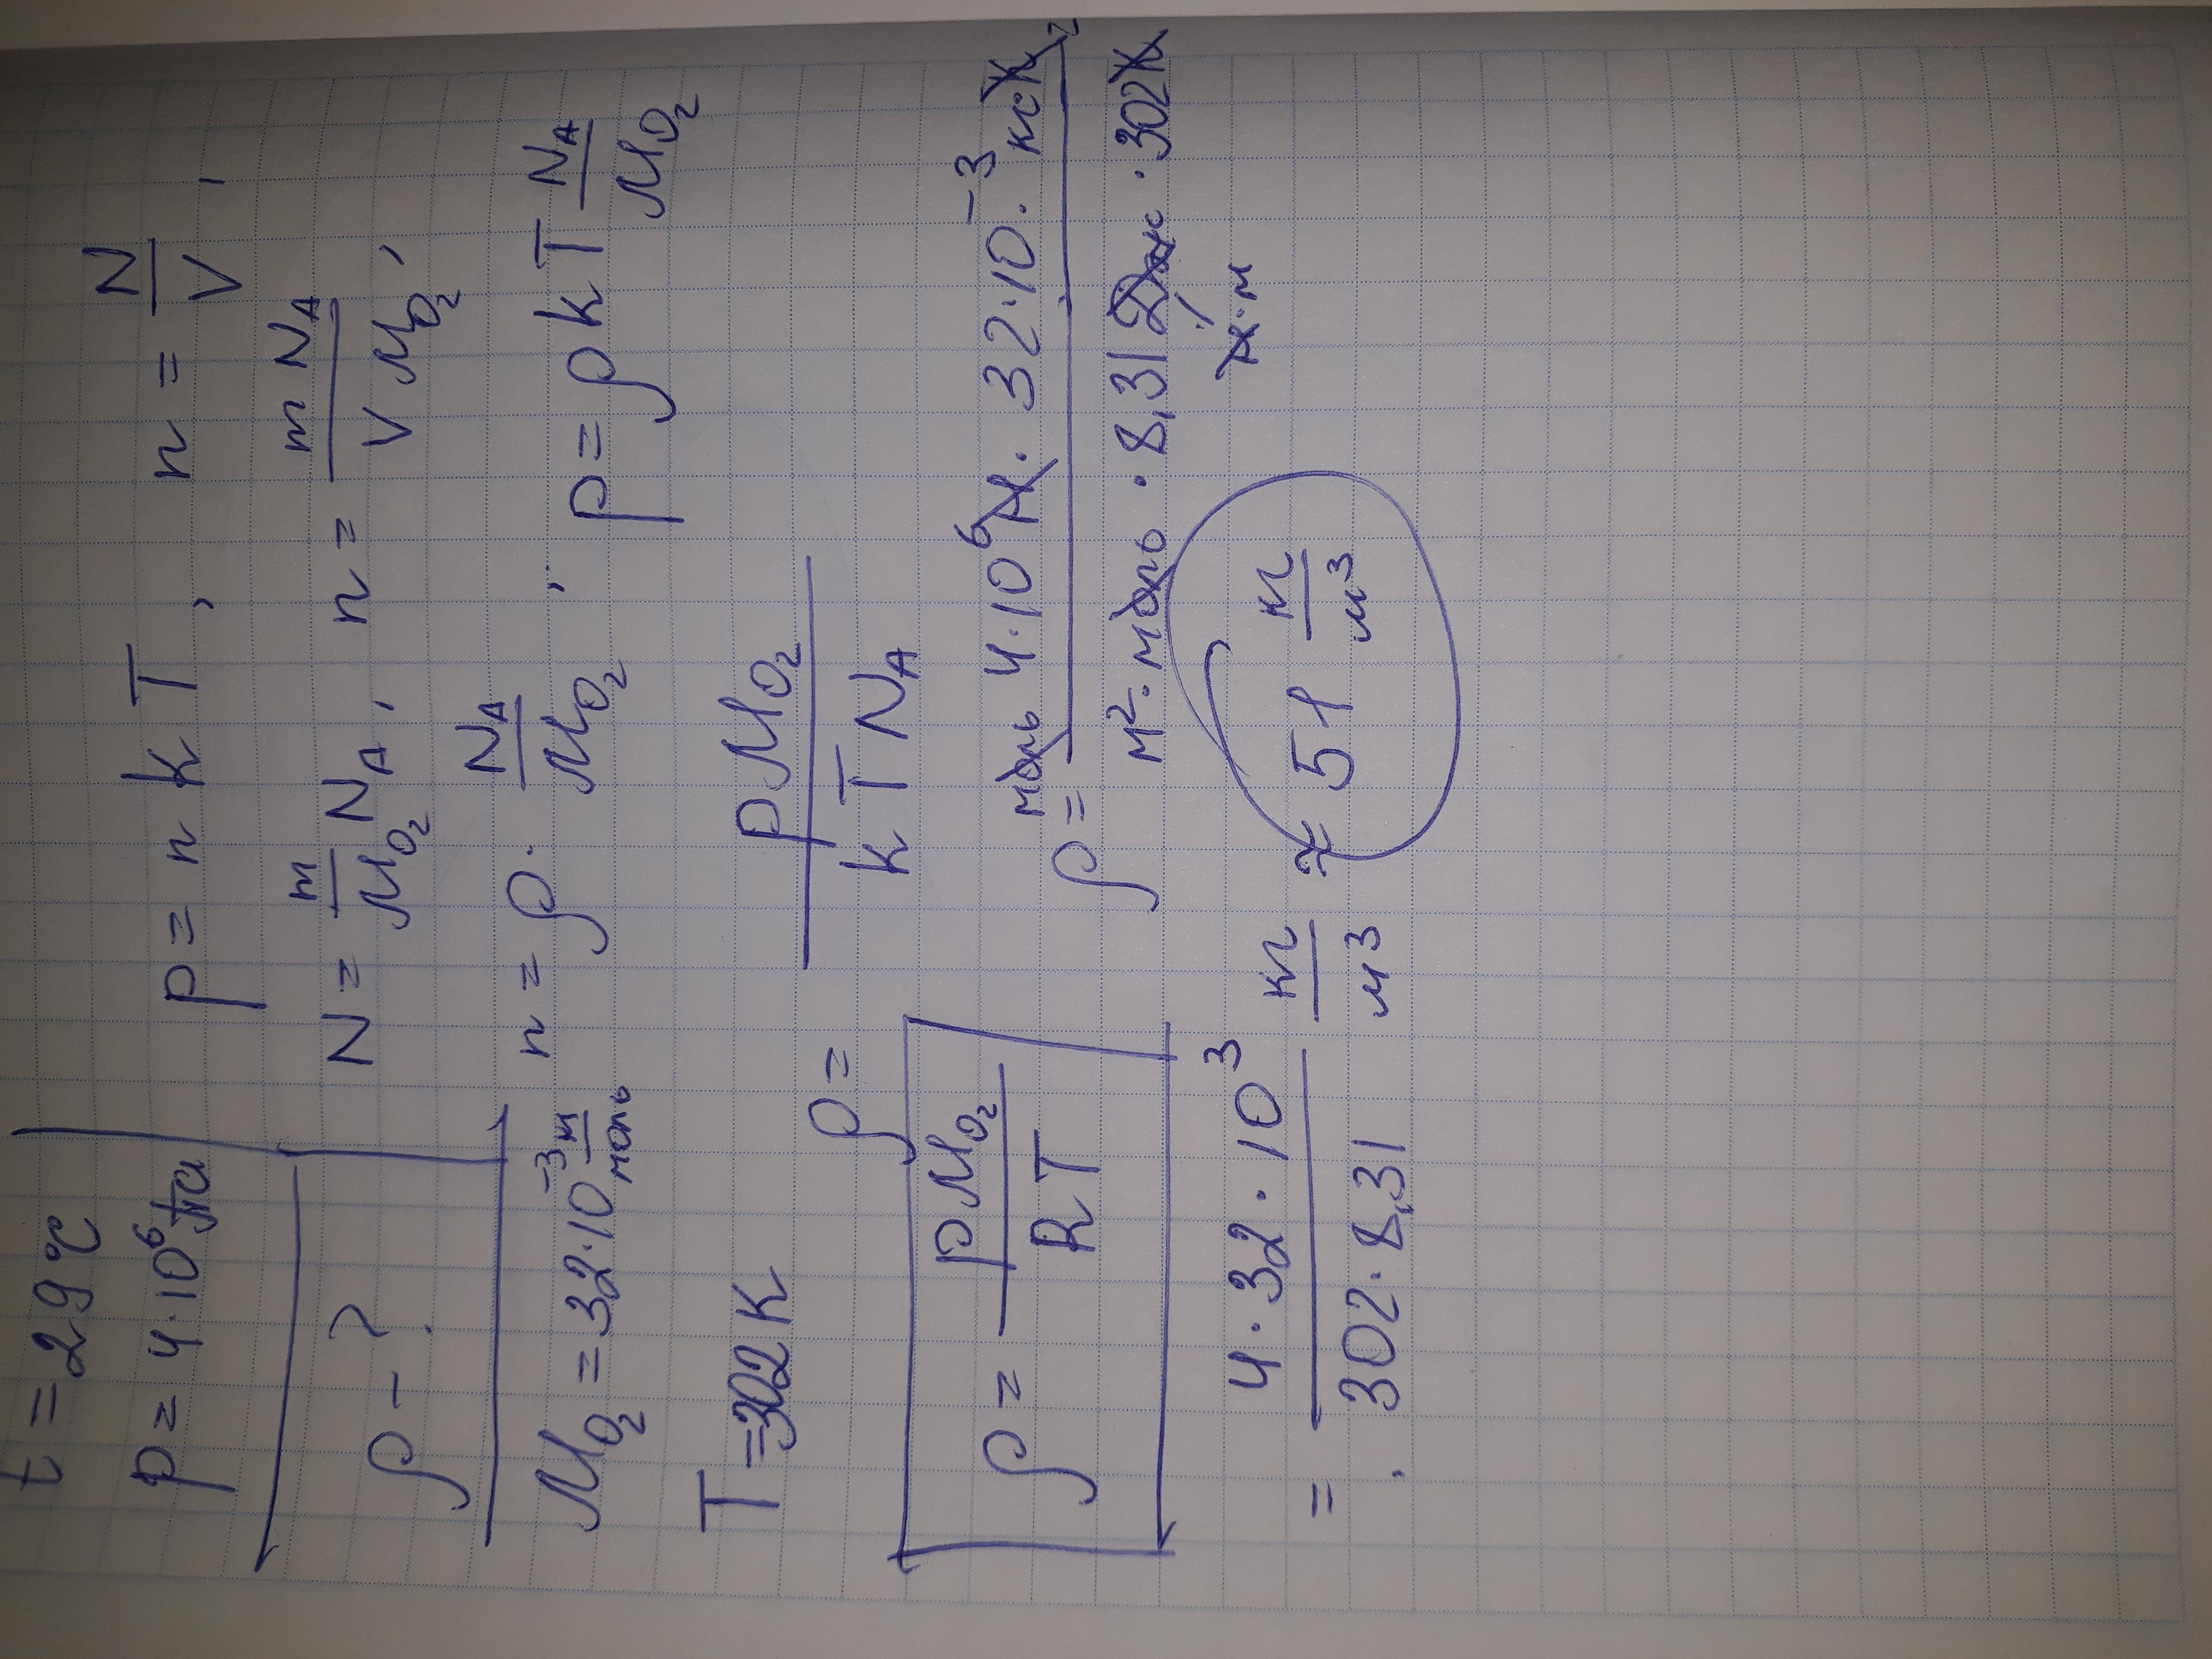 t = 29 °C
p = 4·10⁶ Па
ρ - ?
M_O₂ = 32·10⁻³ кг/моль
T = 302 К
p = n k T , n = N/V ,
N = m/M_O₂ N_A , n = m N_A / V M_O₂ ,
n = ρ · N_A/M_O₂ ; p = ρ k T N_A/M_O₂
ρ = p M_O₂ / k T N_A
ρ = p M_O₂ / R T
ρ = моль 4·10⁶ Н · 32·10⁻³ кг К / м² · моль · 8,31 Дж · 302 К
Н·м
= 4·32·10³ / 302·8,31 кг/м³ ≈ 51 кг/м³